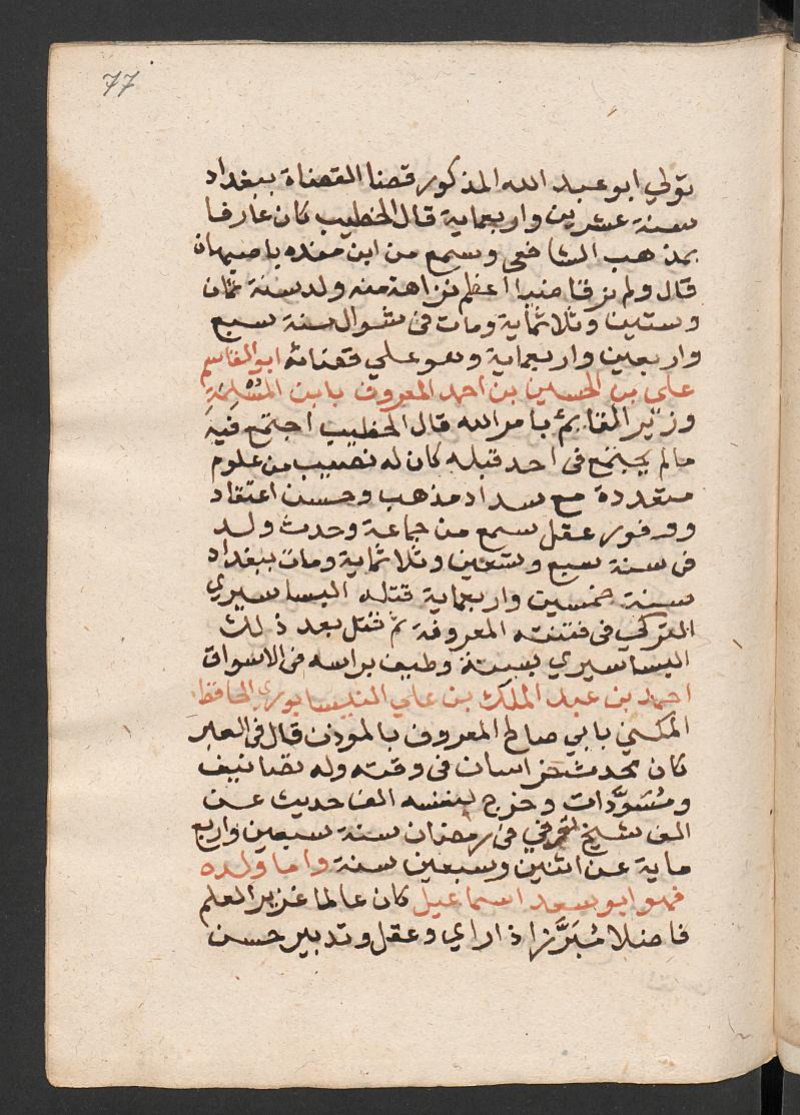 77
تولي ابو عبد الله المذكور قضا القضاة ببغداد
سنة عشرين واربعماية قال الخطيب كان عارفا
بمذهب الشافعى وسمع من ابن منده باصبهان
قال ولم نر قاضيا اعظم نزاهة منه ولد سنة ثمان
وستين وثلاثماية ومات فى شوال سنة سبع
واربعين واربعماية وهو علي قضائه ابو القاسم
علي بن الحسين بن احمد المعروف بابن المسلمة
وزير القايم بامر الله قال الخطيب اجتمع فيه
مالم يجتمع فى احد قبله كان له نصيب من علوم
متعددة مع سداد مذهب وحسن اعتقاد
ووفور عقل سمع من جماعة وحدث ولد
فى سنة سبع وتسعين وثلاثماية ومات ببغداد
سنة خمسين واربعماية قتله البساسيري
التركي فى فتنته المعروفة ثم قتل بعد ذلك
البساسيري بسنة وطيف براسه فى الاسواق
احمد بن عبد الملك بن علي النيسابوري الحافظ
المكني بابي صالح المعروف بالموذن قال فى العبر
كان محدث خراسان فى وقته وله تصانيف
ومُسَوَّدات وخرج لنفسه الف حديث عن
الف شيخ توفي فى رمضان سنة سبعين واربع
ماية عن اثنين وسبعين سنة واما ولده
فهو ابو سعد اسماعيل كان عالما غزير العلم
فاضلا مُبَرَّزا ذا راي وعقل وتدبير حسن